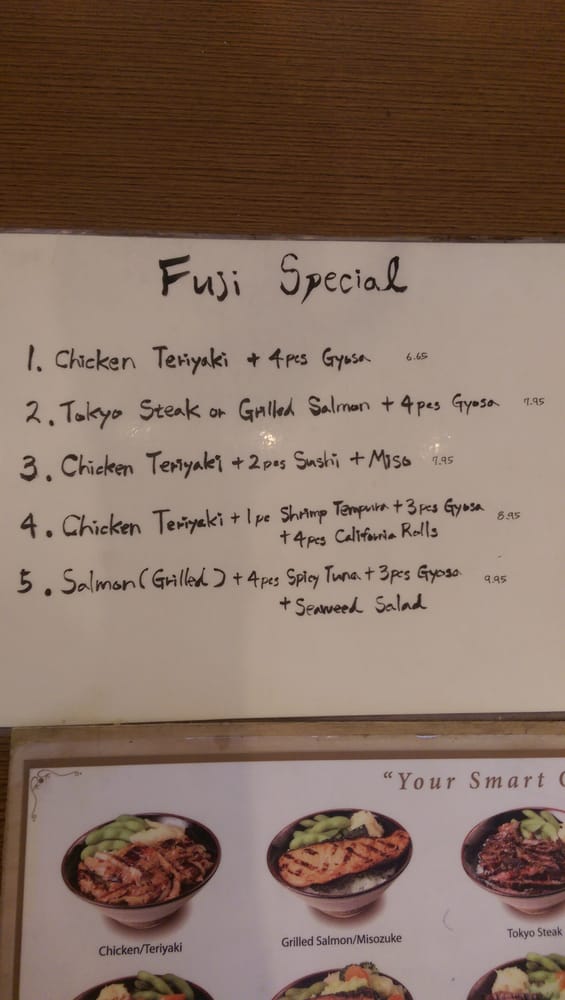 Fuji Special
1. Chicken Teriyaki + 4pcs Gyosa 6.65
2. Tokyo Steak or Grilled Salmon + 4pcs Gyosa 7.95
3. Chicken Teriyaki + 2pcs Sushi + Miso 7.95
4. Chicken Teriyaki + 1pc Shrimp Tempura + 3pcs Gyosa 8.95
+ 4pcs California Rolls
5. Salmon (Grilled) + 4pcs Spicy Tuna + 3pcs Gyosa 9.95
+ Seaweed Salad
"Your Smart
Chicken/Teriyaki Grilled Salmon/Misozuke Tokyo Steak